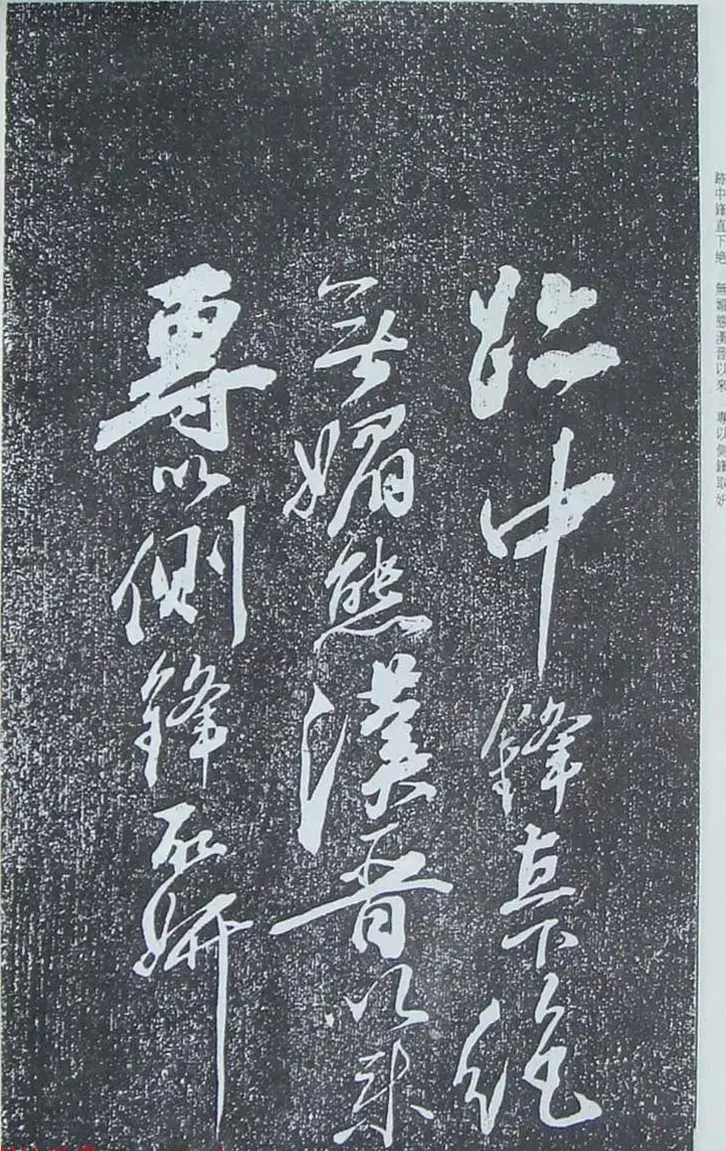 跡中鋒直下絶　無媚態漢晉以來　專以側鋒取妍
跡中鋒直下絶
無媚態漢晉以来
專以側鋒取妍